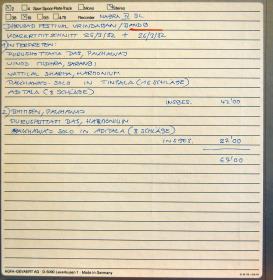 2 4 Spur Spool-Rate-Track Mono Stereo
38 19 9.5 4.75 Recorder NAGRA IV SL
DHRUPAD FESTIVAL VRINDABAN / BAND 3
KONZERTMITSCHNITT 25/3/82 + 26/3/82
1) INTERPRETEN:
PURUSHOTTAMA DAS, PAKHAWAJ
VINOD MISHRA, SARANGI
NATTILAL SHARMA, HARMONIUM
PAKHAWAJ-SOLO IN TINTALA (16 SCHLÄGE)
ADITALA (8 SCHLÄGE)
INSGES. 42'00
2) BHIMSEN, PAKHAWAJ
PURUSHOTTAM DAS, HARMONIUM
PAKHAWAJ-SOLO IN ADITALA (8 SCHLÄGE)
INSGES. 22'00
AGFA-GEVAERT AG D-5090 Leverkusen 1 Made in Germany